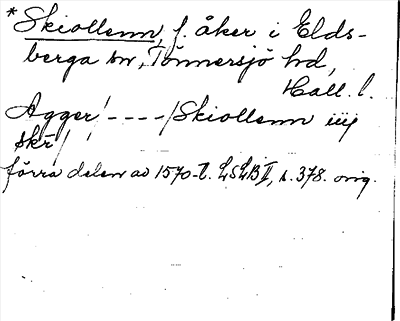 *Skiollenn, f. åker i Elds-
berga sn, Tönnersjö hd,
Hall. l.
Agger! ----/Skiollenn iiij
skr/!
förra delen av 1570-t. LSLB II, s. 378. orig.